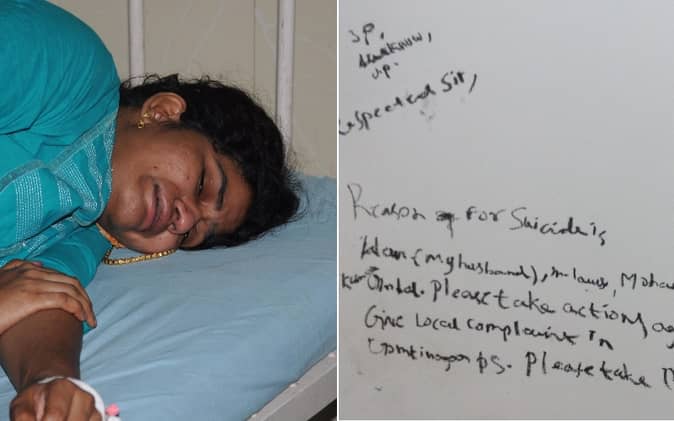 SP,
Lucknow,
U.P.
Respected Sir,
Reason of For Suicide is
(my husband), In laws, Moha
Please take action ag
Give Local complaint in
Gomtinagar PS. Please take